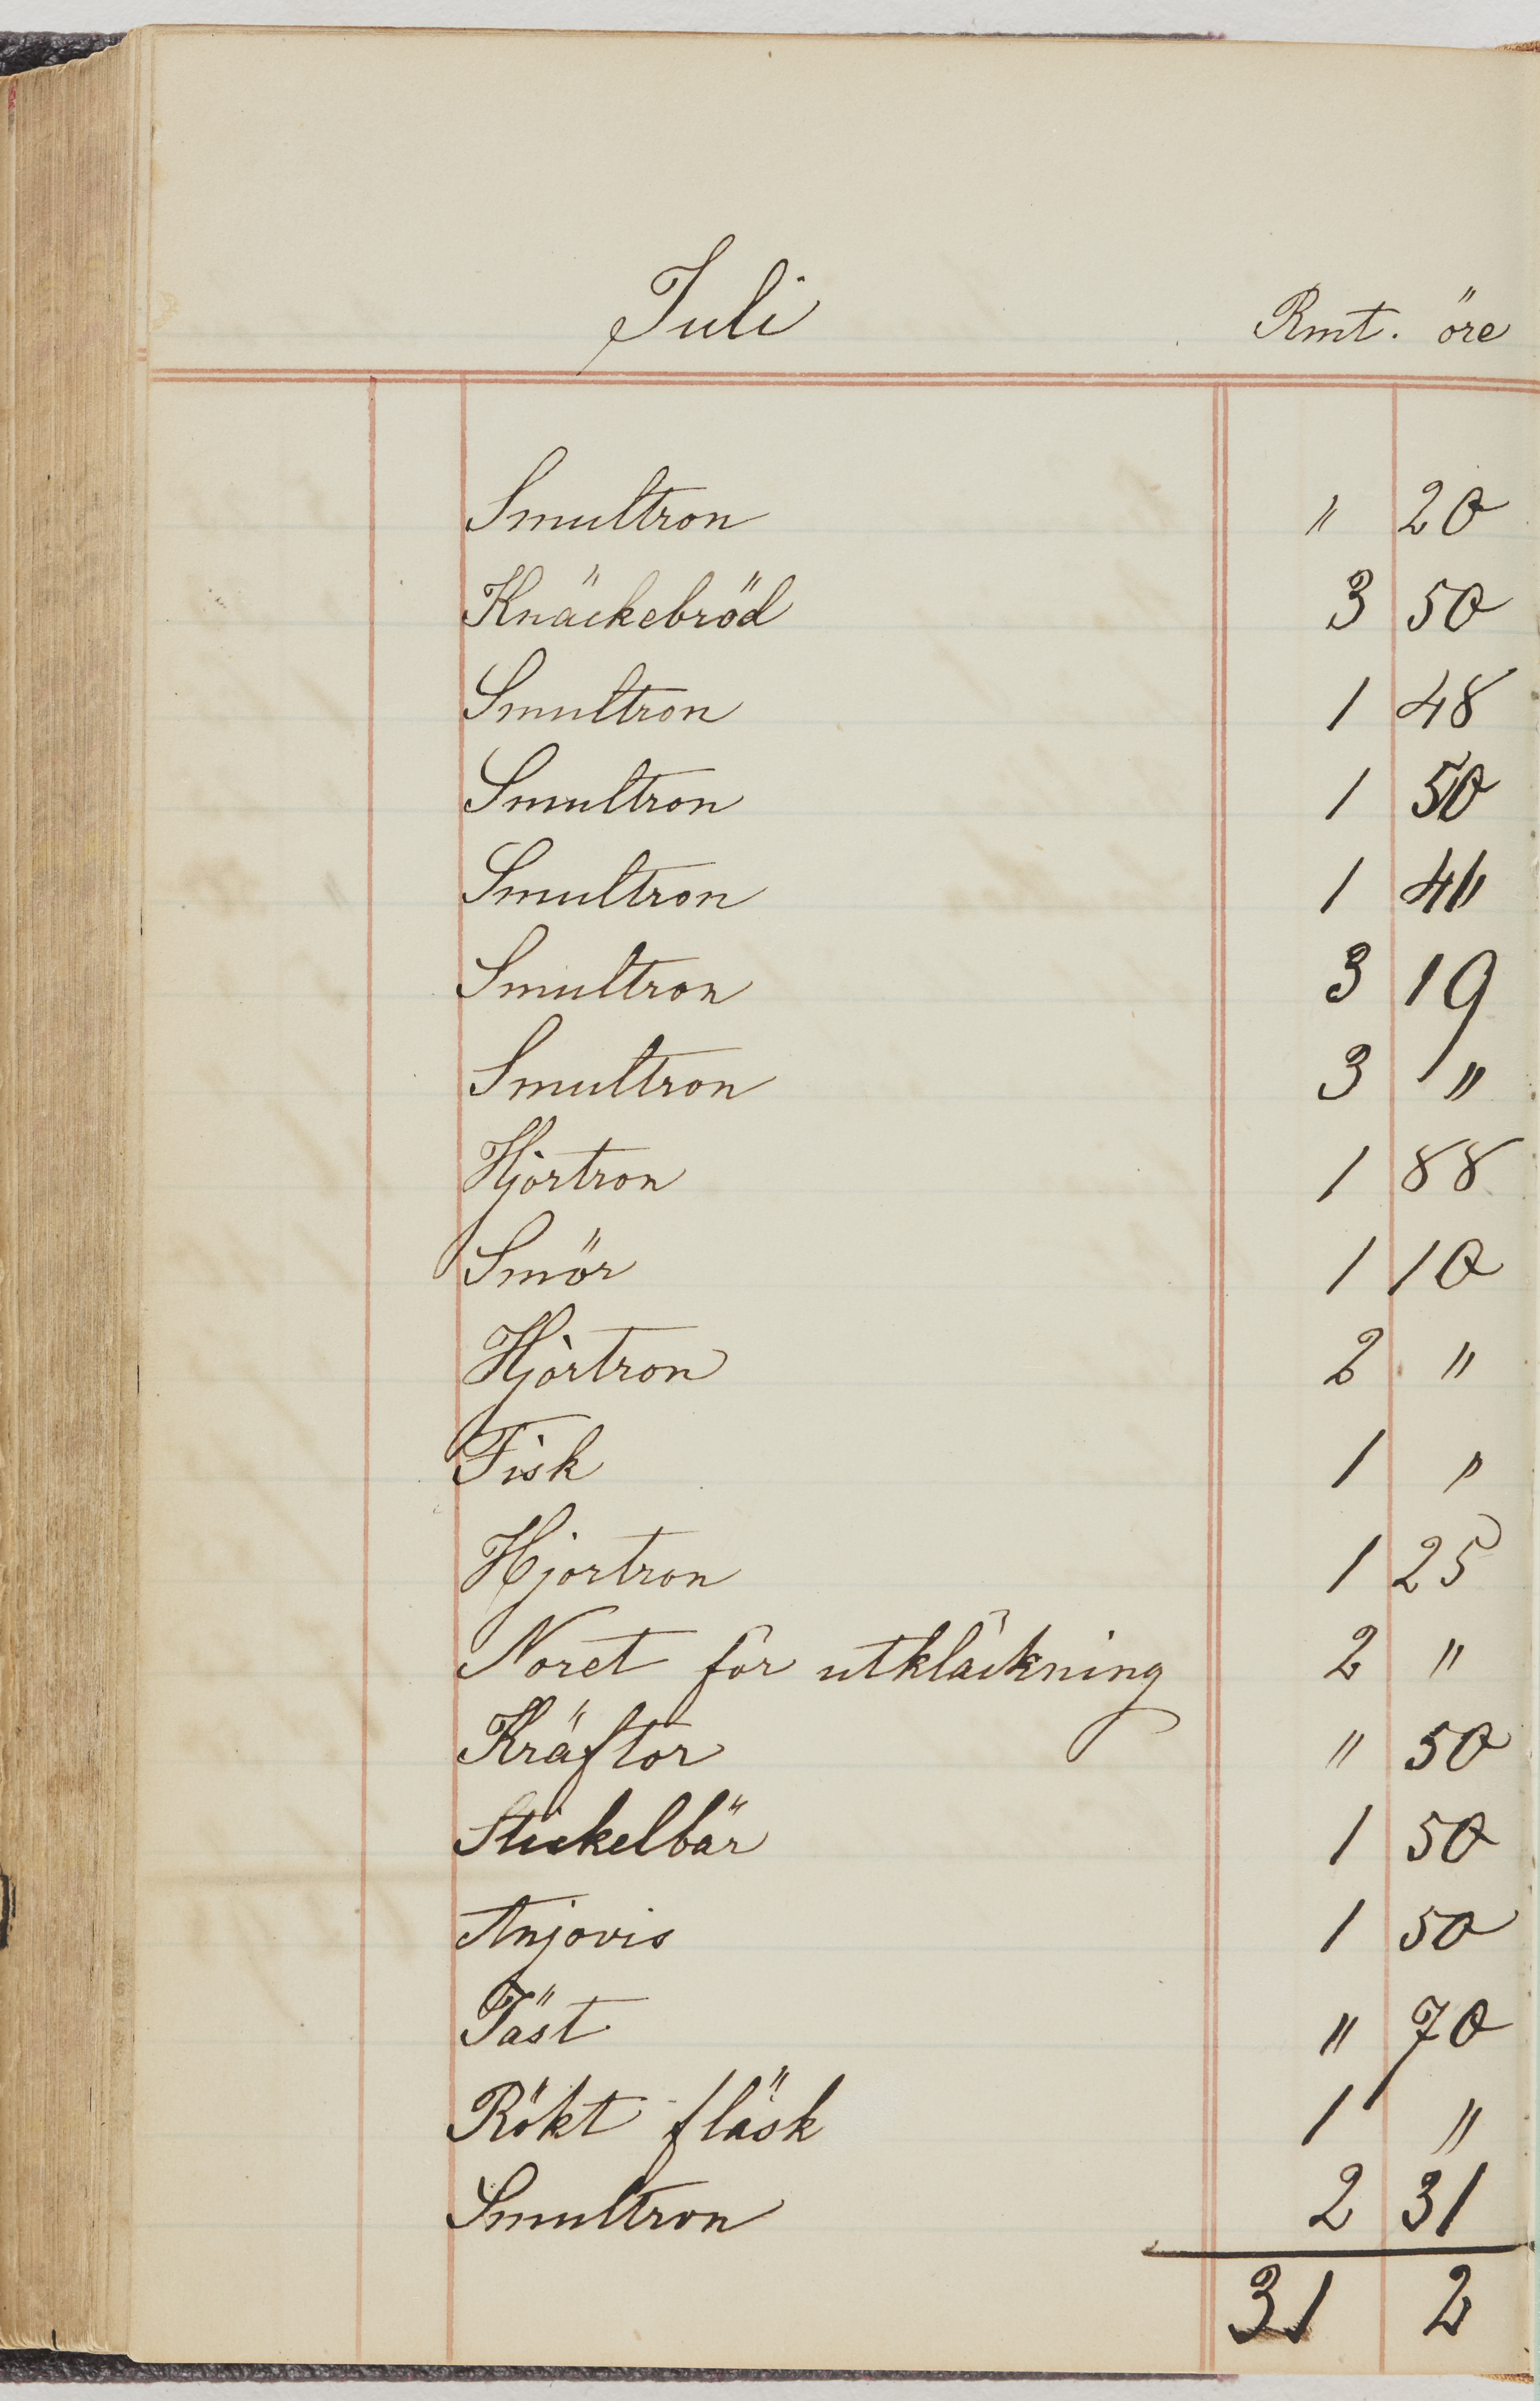 Juli Rmt. öre
Smultron " 20
Knäckebröd 3 50
Smultron 1 48
Smultron 1 50
Smultron 1 41
Smultron 3 19
Smultron 3 "
Hjortron 1 88
Smör 1 10
Hjortron 2 "
Fisk 1 "
Hjortron 1 25
Noret för utkläckning 2 "
Kräftor " 50
Stickelbär 1 50
Anjovis 1 50
Jäst " 70
Rökt fläsk 1 "
Smultron 2 31
31 2